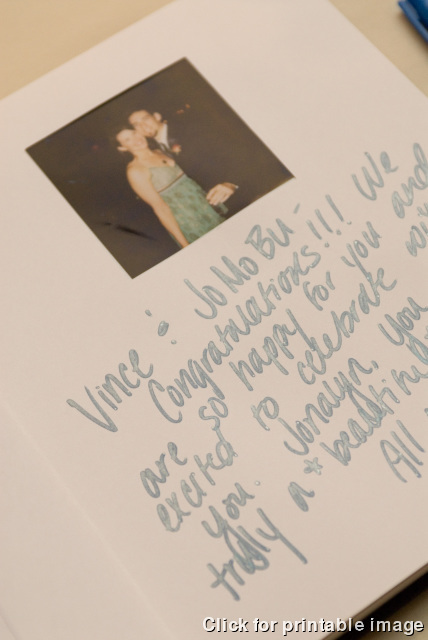 Vince & JoMoBu -
Congratulations!!! We
are so happy for you and
excited to celebrate
you. Jonalyn, you
truly a beautiful
All
Click for printable image